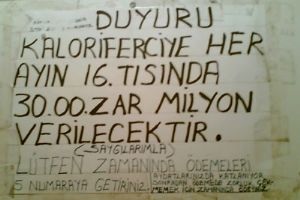 DUYURU
KALORİFERCİYE HER
AYIN 16.TISINDA
30.00.ZAR MİLYON
VERİLECEKTİR.
(SAYGILARIMLA)
LÜTFEN ZAMANINDA ÖDEMELERİ
5 NUMARAYA GETİRİNİZ.
AYDATLARINIZDA KATLANIYOR
SONRADAN ÖDEMEDE ZORLUK ÇEK-
MEMEK İÇİN ZAMANINDA